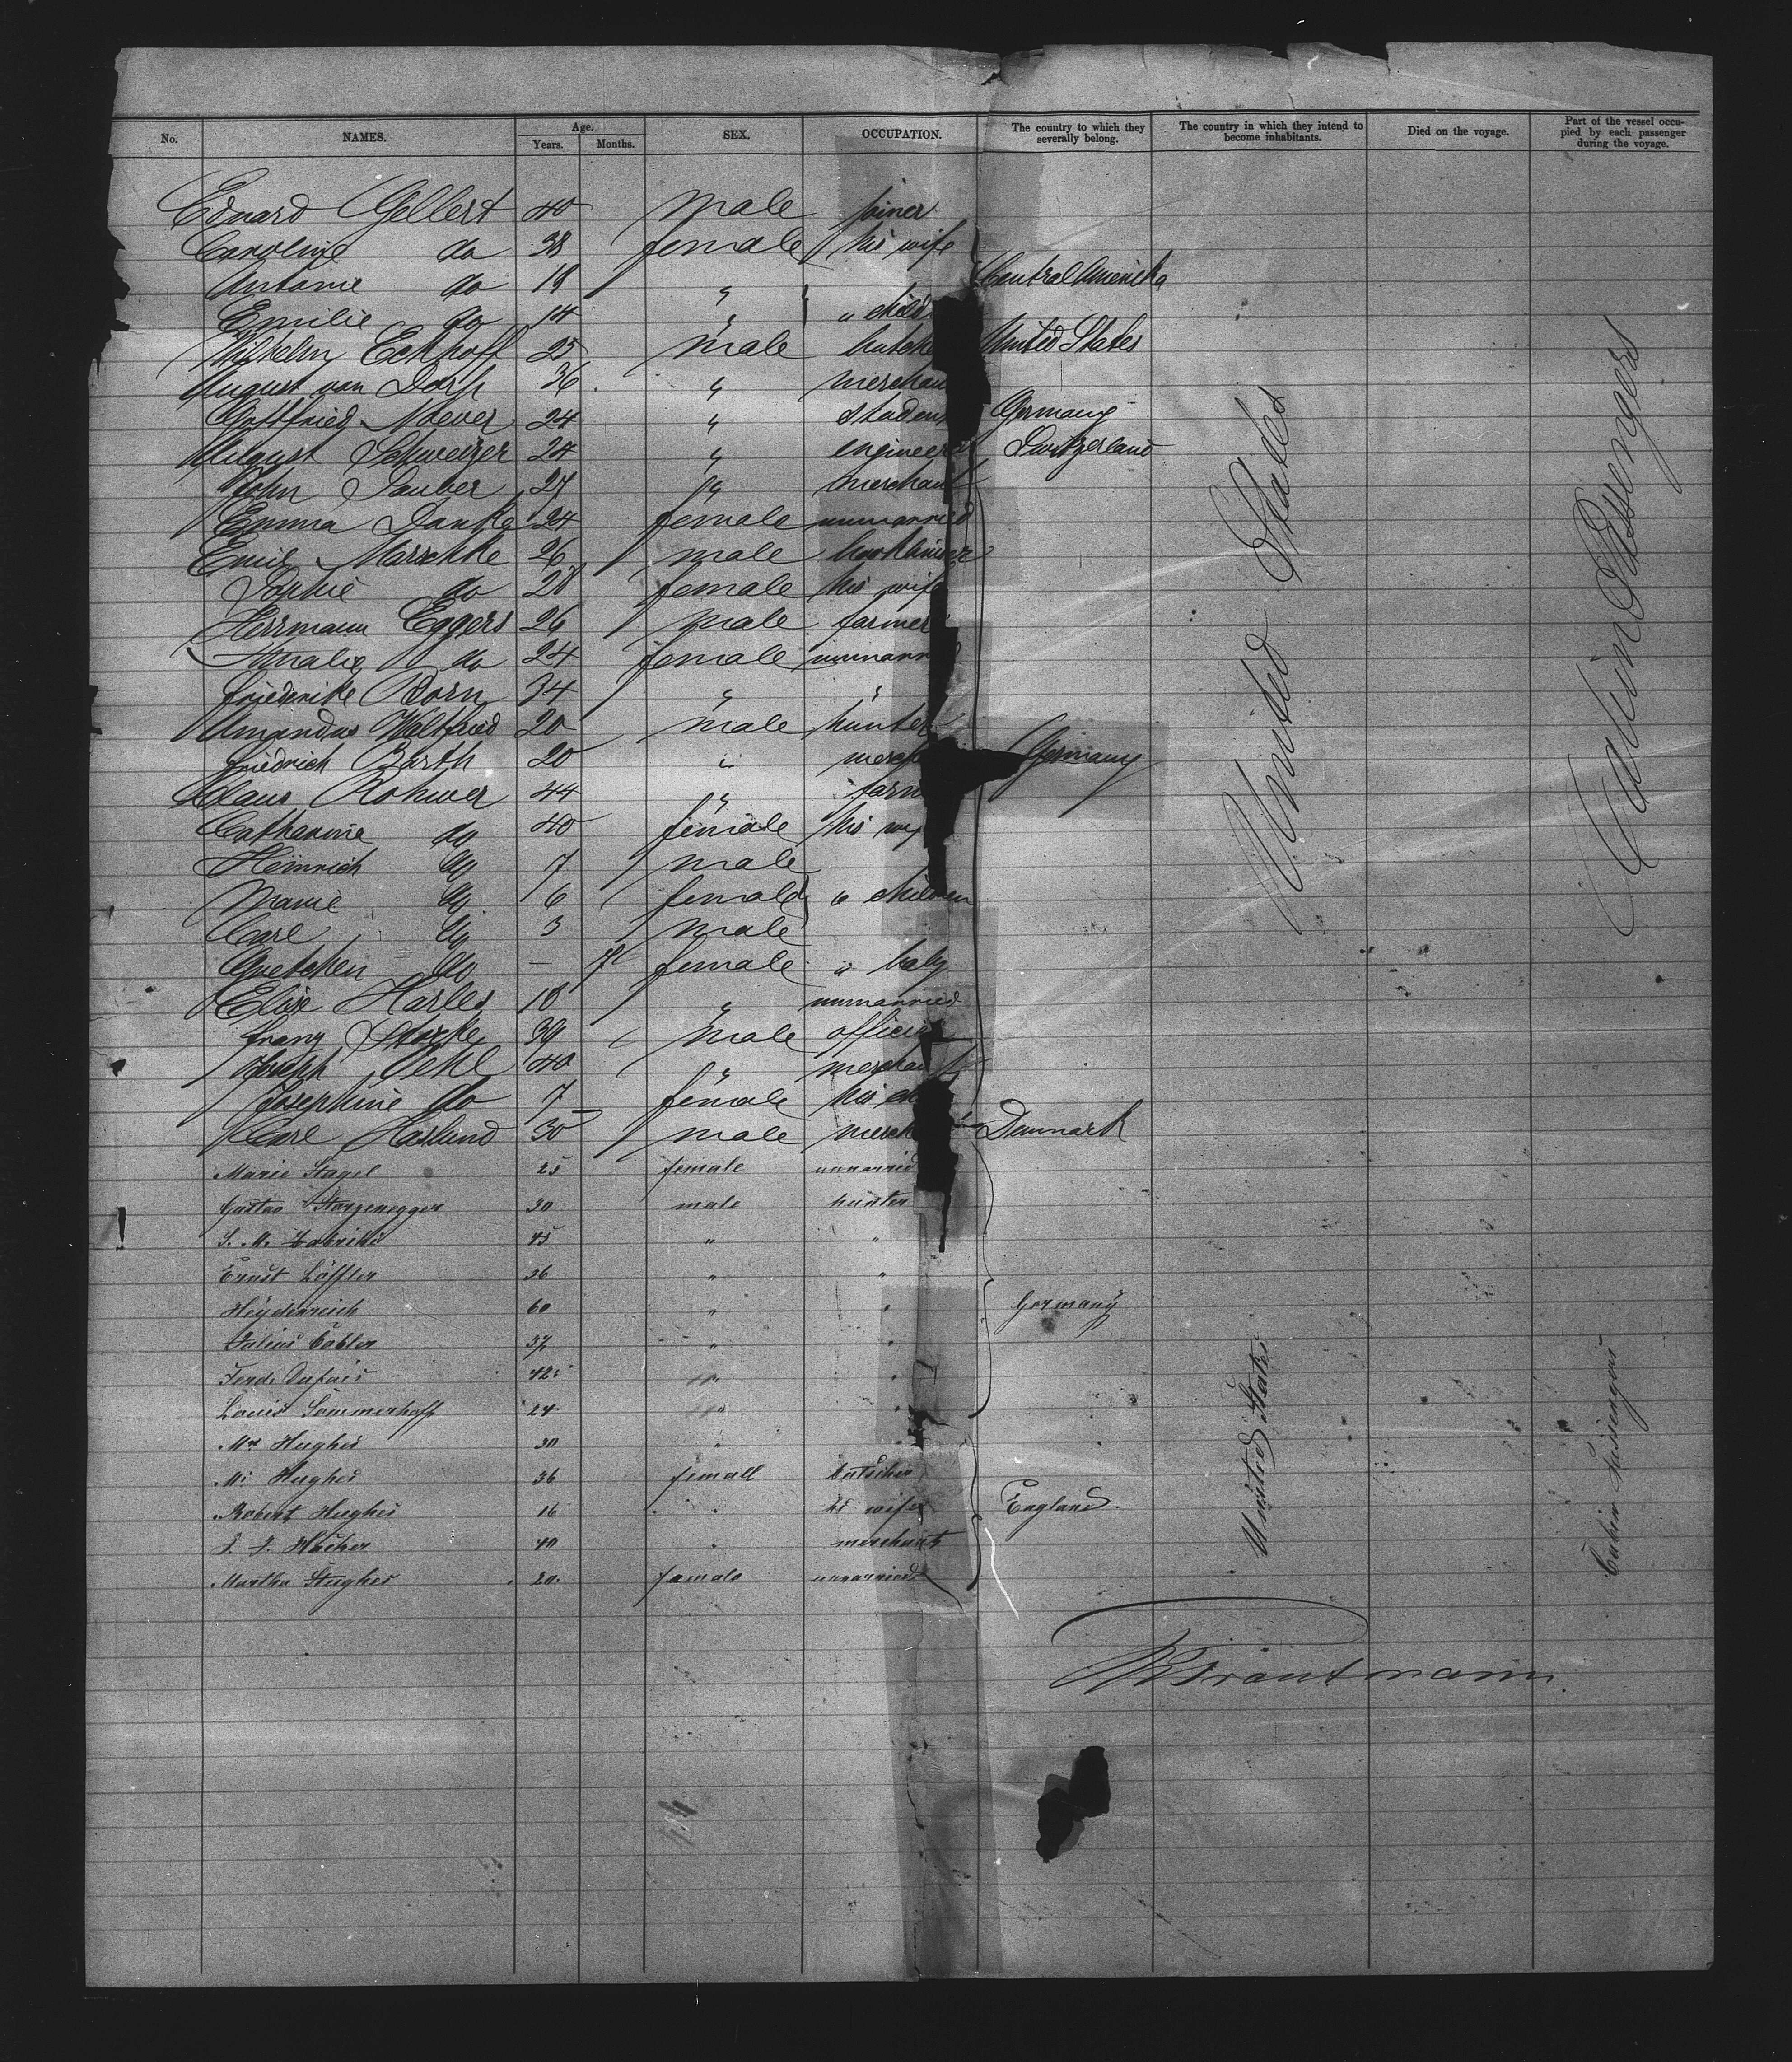 No. NAMES. Age. Years. Months. SEX. OCCUPATION. The country to which they severally belong. The country in which they intend to become inhabitants. Died on the voyage. Part of the vessel occupied by each passenger during the voyage.
Eduard Gellert 40 male joiner
Caroline do 38 female his wife
Antonie do 18 " Central Amerika
Emilie do 14 " " child
Wilhelm Eckhoff 25 male butche United States
August van Dorp 36 " merchan
Gottfried Mever 24 " student Germany
August Schweizer 24 " engineer Switzerland
John Dauber 27 " merchant
Emma 24 female unmarried
Emil Marschke 26 male
Sophie do 28 female his wife
Herrmann Eggers 26 male farmer
Amalie do 24 female unmarried
Friederike Born 34 " "
Amandus Waltfried 20 male hunter
Friedrich Barth 20 " merch Germany
Claus Rohwer 44 " farm
Catharina do 40 female his
Heinrich do 7 male
Marie do 6 female " children
Carl do 3 male
Gretchen do — female " baby
Elise Harles 18 " unmarried
Franz Storke 39 male
Joseph Oehl 40 " merchant
Josephine do 7 female his
Carl Haslund 30 male merch Denmark
Marie Stagel 25 female unmarried
Gustav 30 male hunter
S. M. 45 " "
Ernst Löffler 36 " "
Heydenreich 60 " " Germany
Julius Cobler 37 " "
Ferd. Dufais 42 " "
Louis Sommerhoff 24 " "
Mr Hughes 30 " "
Ms Hughes 36 femall butscher
Robert Hughes 16 " hs wife England
40 " merchant
Martha Hughes 20 female unmarried
United States
Cabin Passengers
United States
Cabin Passengers
Brautmann